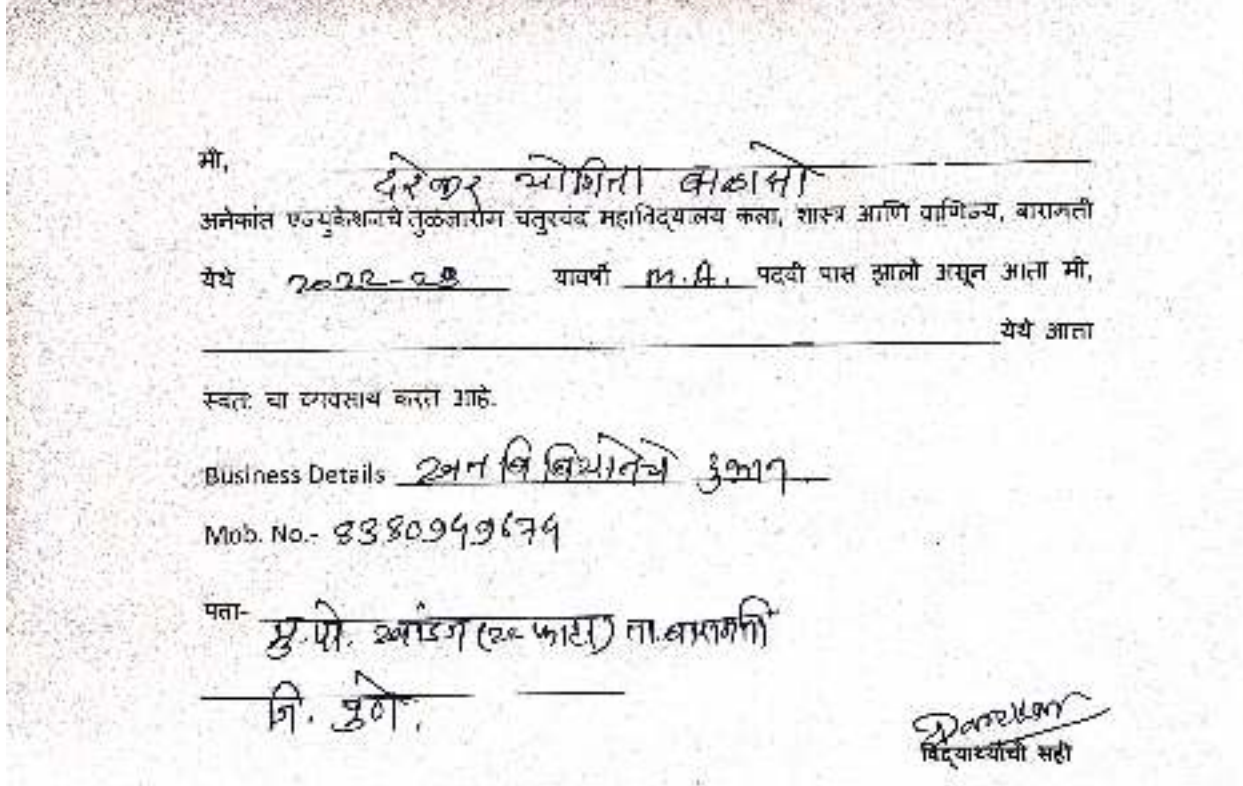 मी,
दरेकर योगिता बाळासो
अनेकांत एज्युकेशनचे तुळजाराम चतुरचंद महाविद्यालय कला, शास्त्र आणि वाणिज्य, बारामती
येथे 2022-23 यावर्षी M.A. पदवी पास झालो असून आता मी,
येथे आता
स्वतः चा व्यवसाय करत आहे.
Business Details खत बि बियानेचे दुकान
Mob. No.- 8380949674
पता-
मु.पो. खांडज (२२ फाटा) ता.बारामती
जि. पुणे.
Darekar
विद्यार्थ्याची सही